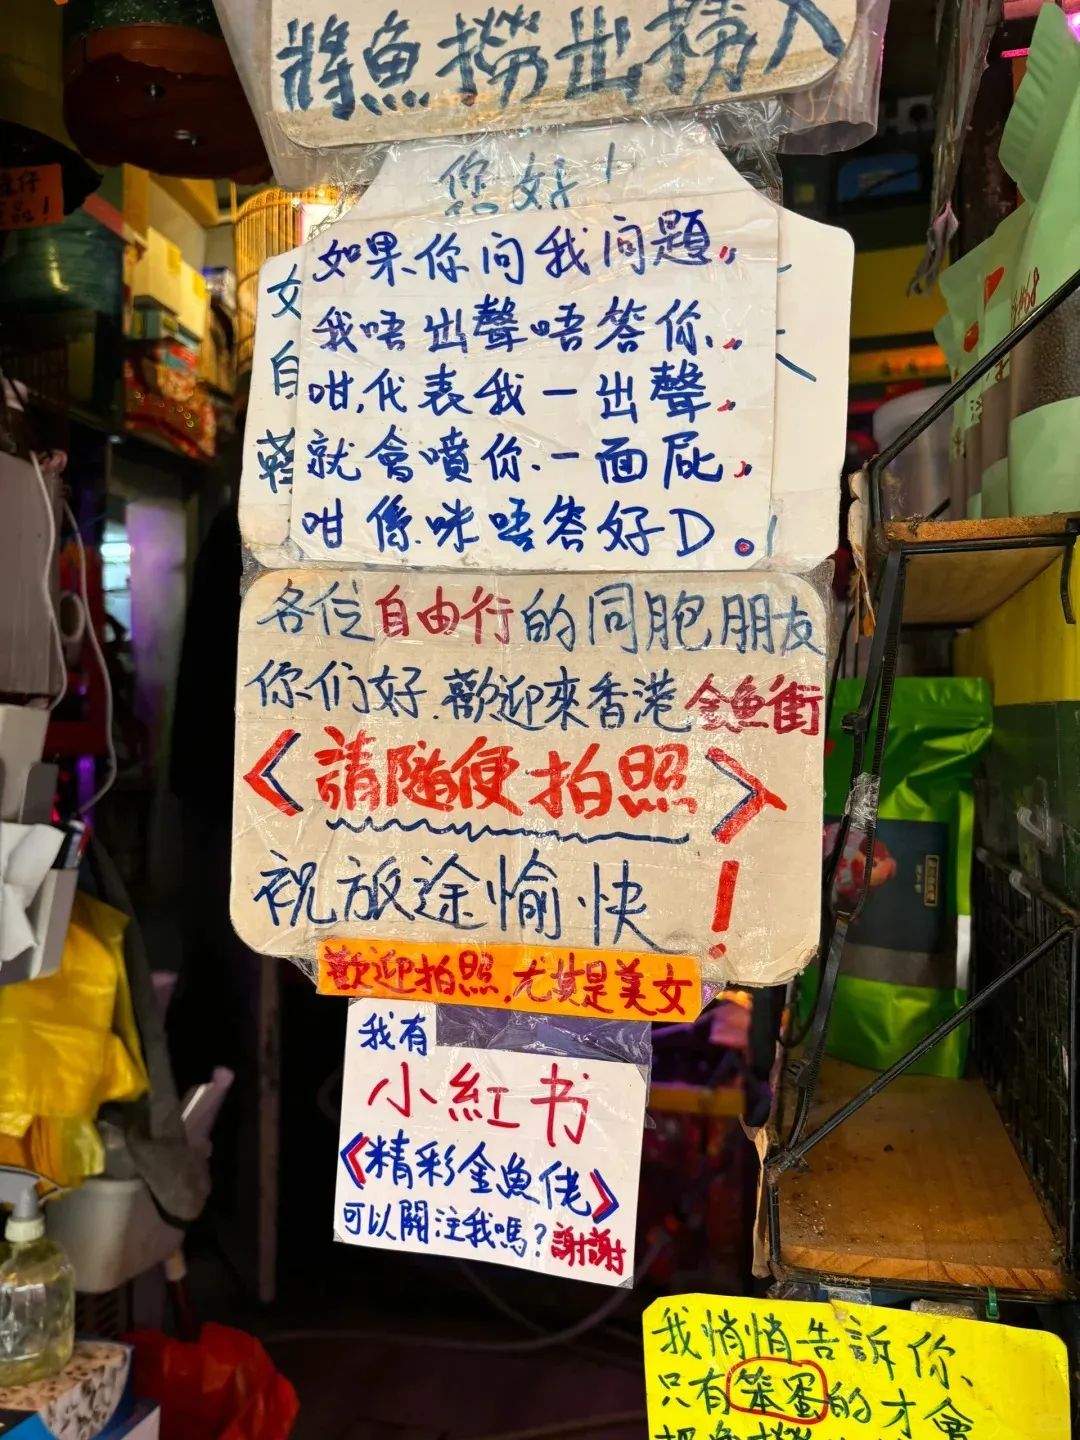 將魚撈出撈入
您好!
如果你问我问題,,
我唔出聲唔答你,,
咁,代表我一出聲,
就會噴你一面屁,
咁係咪唔答好D。!
各位自由行的同胞朋友
你们好.歡迎來香港金魚街
《請隨便拍照》
祝旅途愉快!
歡迎拍照,尤其是美女
我有
小紅书
《精彩金魚佬》
可以關注我嗎?謝謝
我悄悄告訴你、
只有笨蛋的才會